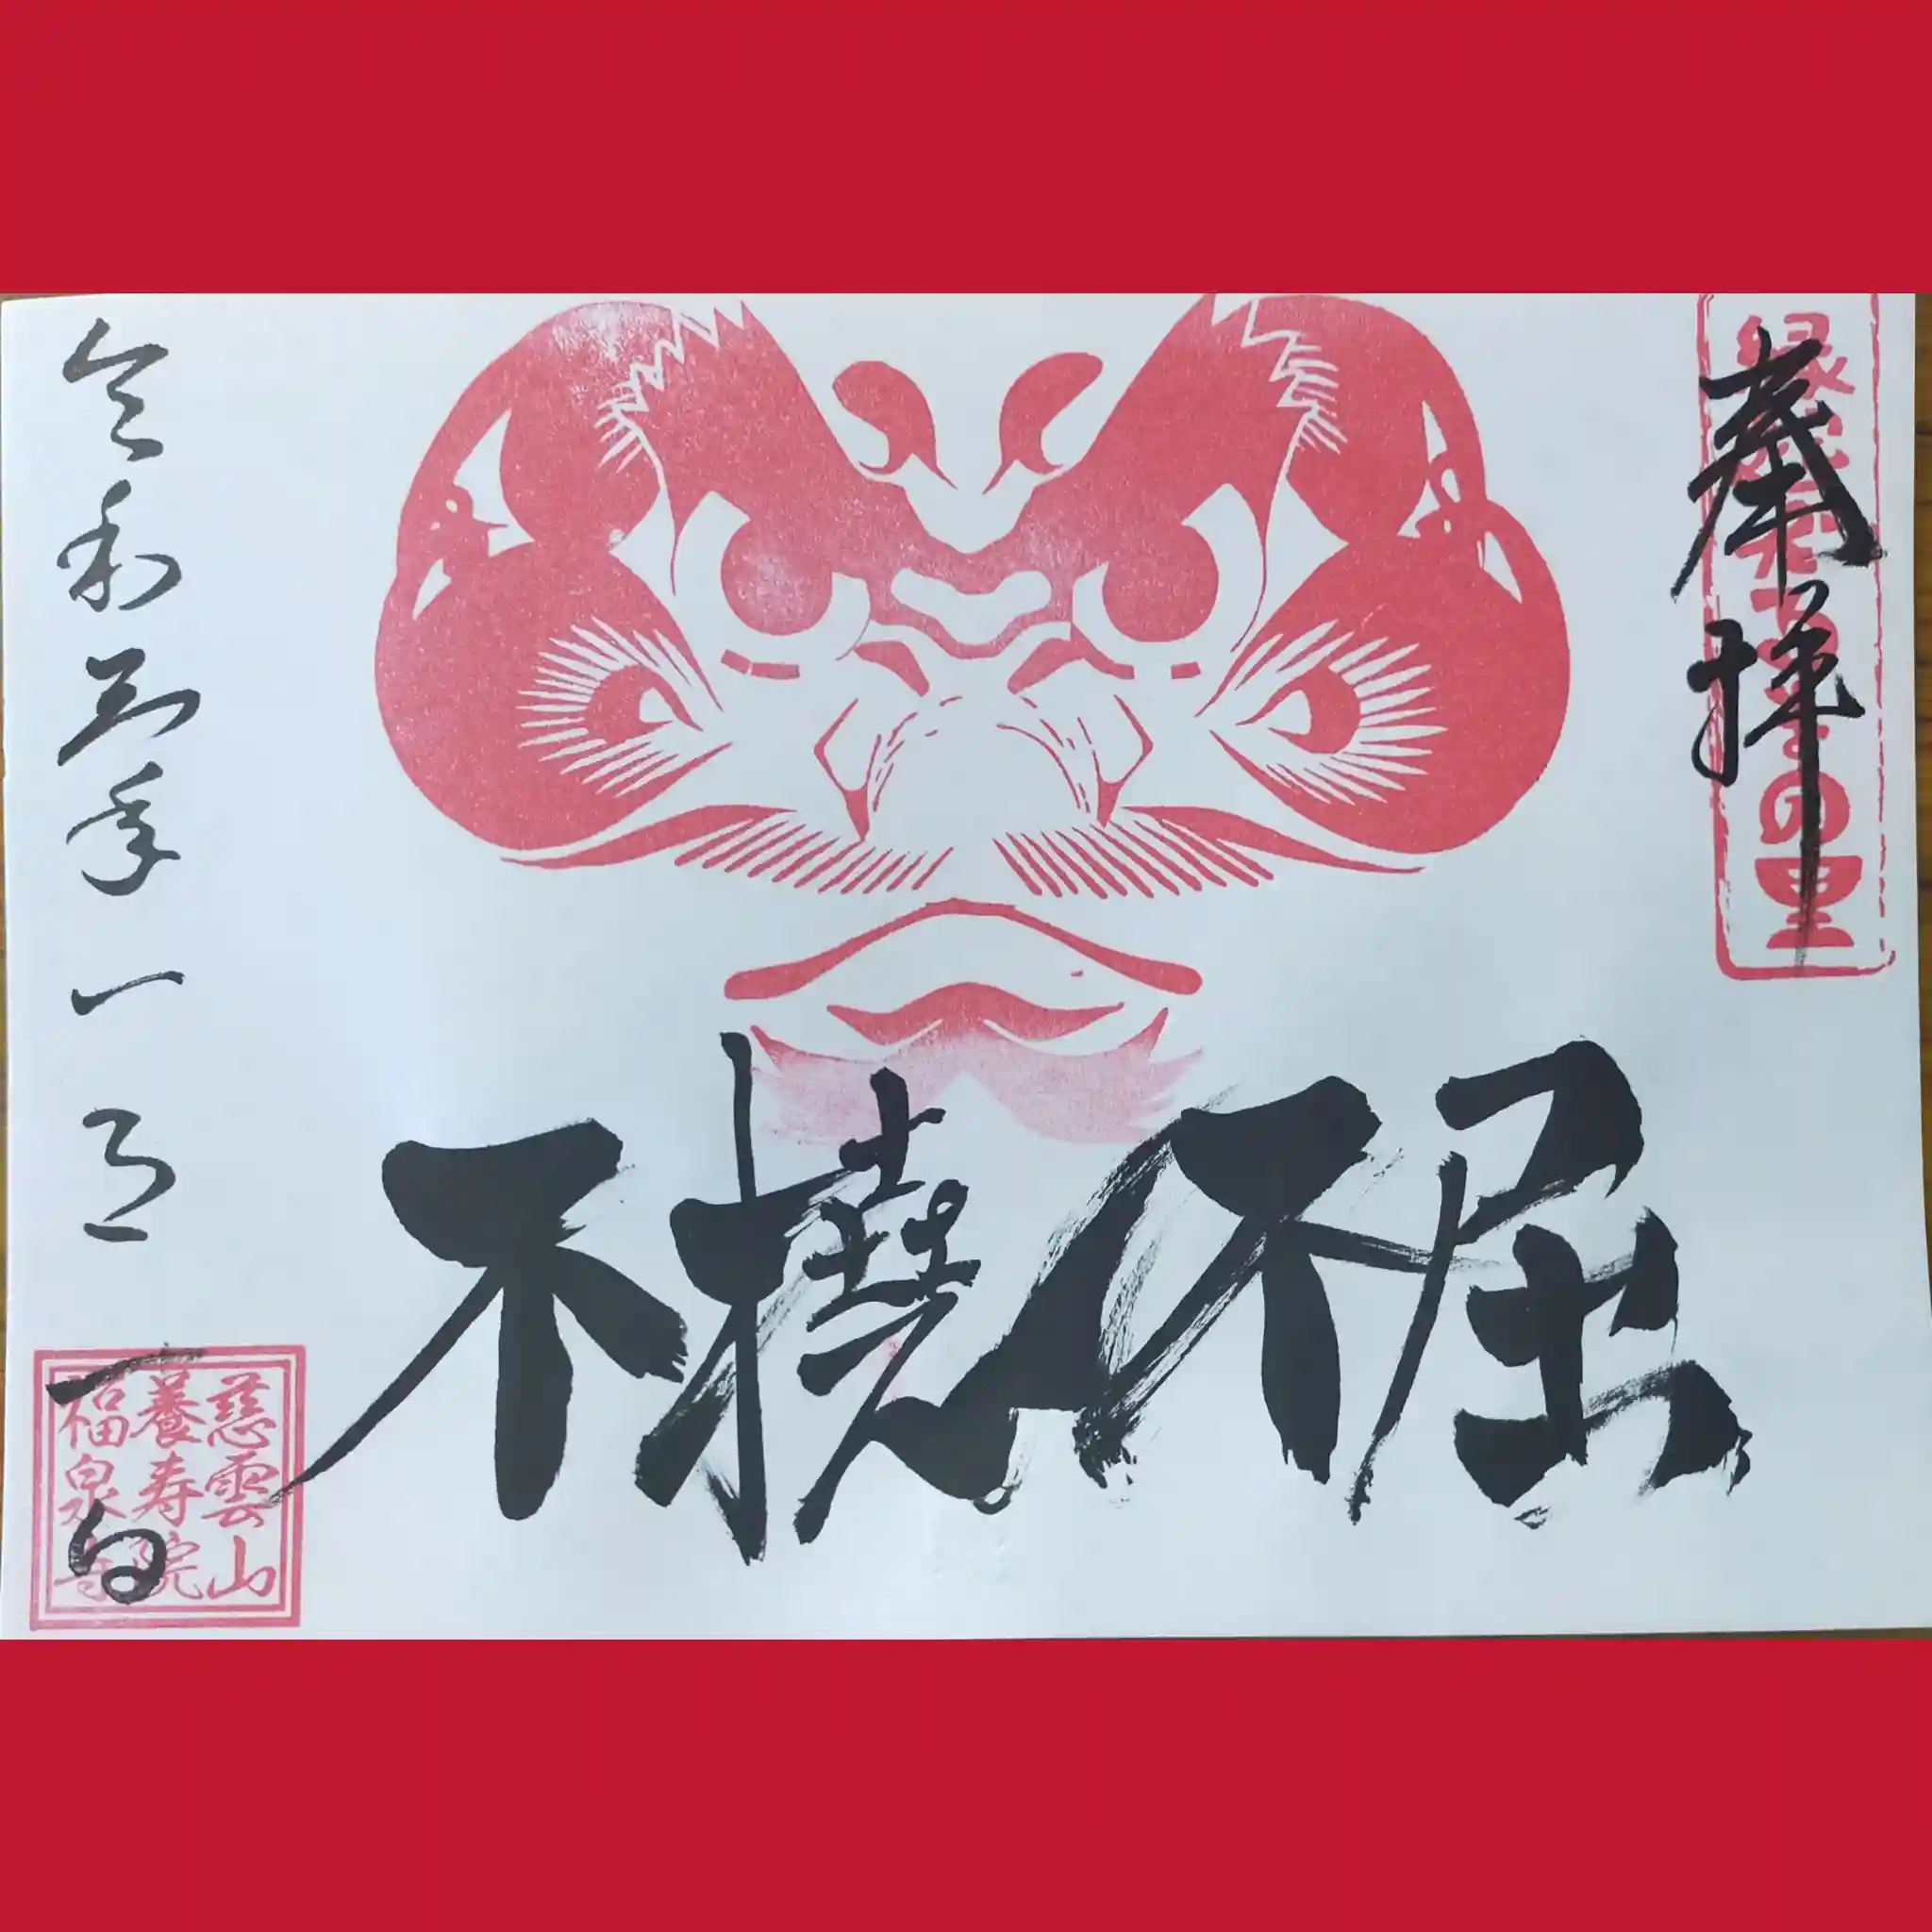 奉拝
縁起だるまの里
不撓不屈
令和五年一月一日
慈雲山
養寿院
福泉寺